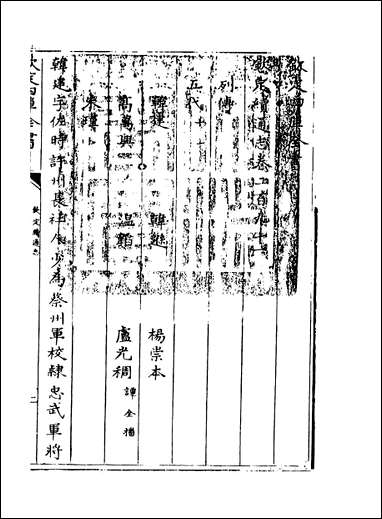 欽定四庫全書
欽定續通志卷
列傳
五代
韓建 韓 楊崇本
高萬興 溫韜 盧光稠 譚全播
朱
韓建字佐時許州長社人少為蔡州軍校隸忠武軍將
欽定四庫全書
欽定續通志